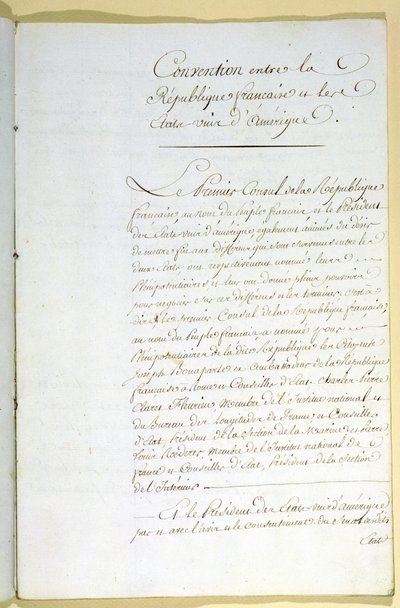 Convention entre la
République française et les
Etats unis d'Amérique.
Le Premier Consul de la République
française au nom du Peuple français et le Président
des Etats unis d'amérique également animés du désir
de mettre fin aux différens qui sont survenus entre les
deux Etats, ont respectivement nommé leurs
Plénipotentiaires et leur ont donné plein pouvoir
pour négocier sur ces différens et les terminer, c'est à
dire le premier Consul de la République française,
au nom du Peuple français a nommé pour
Plénipotentiaires de la dite République les Citoyens
Joseph Bonaparte ex Ambassadeur de la République
française à Rome et Conseiller d'Etat, Charles Pierre
Claret Fleurieu Membre de l'Institut national et
du Bureau des longitudes de France et Conseiller
d'Etat, Président de la Section de la Marine et Pierre
Louis Roederer, membre de l'Institut national de
France et Conseiller d'Etat, Président de la Section
de l'Intérieur.
Et le Président des Etats unis d'amérique
par et avec l'avis et le consentement du Sénat des dits
Etats